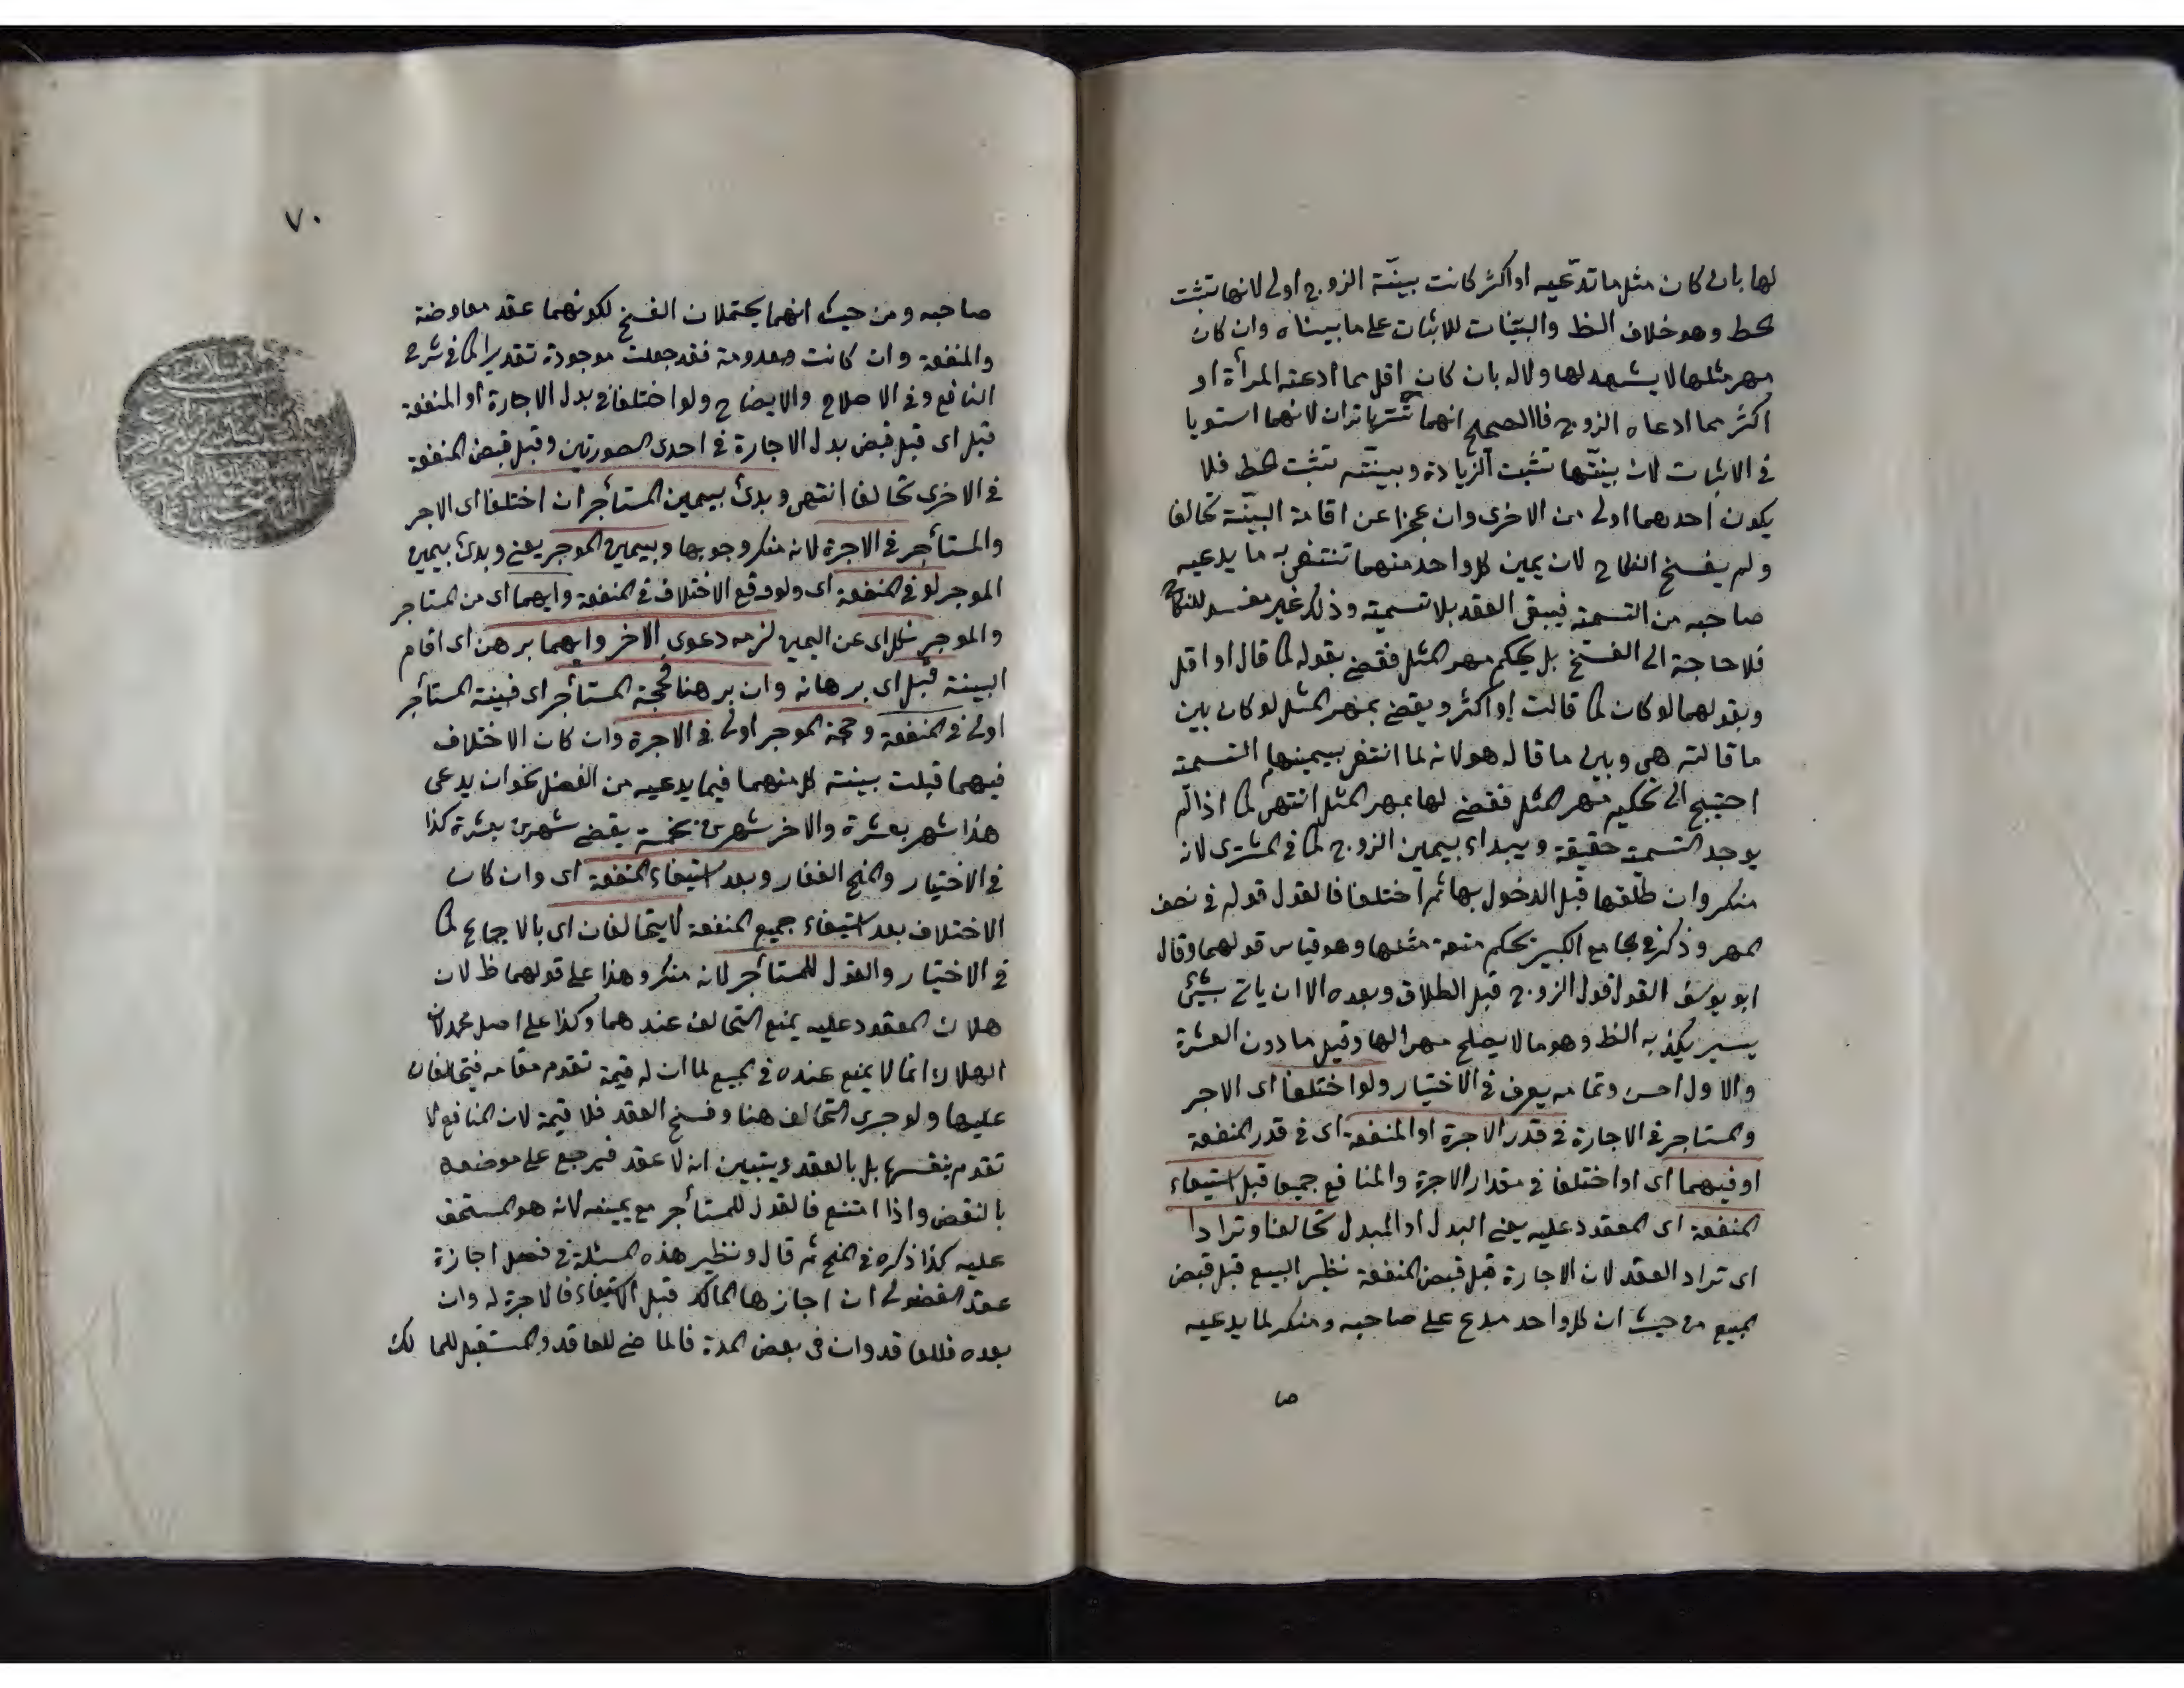 لها بان كان مثل ما تدّعيه او اكثر كانت بينّة الزوج اولى لانها تثبت
الحط وهو خلاف الظ والبيّنات للاثبات على ما بيناه وان كان
مهر مثلها لا يشهد لها ولا له بان كان اقل مما ادعته المرأة او
اكثر مما ادعاه الزوج فاالصحيح انهما تتهاتران لانهما استويا
فى الاثبات لان بينّتها تثبت الزيادة وبينّته تثبت الحط فلا
يكون احدهما اولى من الاخرى وان عجزا عن اقامة البينّة تحالفا
ولم يفسخ النكاح لان يمين كل واحد منهما تنتفى به ما يدعيه
صاحبه من التسمية فيبقى العقد بلا تسمية وذلك غير مفسد للنكاح
فلا حاجة الى الفسخ بل يحكم مهر المثل فقضى بقوله كما قال او اقل
وبقولها لو كان كما قالت او اكثر ويقضى بمهر المثل لو كان بين
ما قالته هى وبين ما قاله هو لانه لما انتفى بيمينهما التسمية
احتيج الى تحكيم مهر المثل فقضى لها بمهر المثل انتهى كما اذا لم
يوجد التسمية حقيقة ويبداء بيمين الزوج كما فى المشترى لانه
منكر وان طلّقها قبل الدخول بها ثم اختلفا فالقول قوله فى نصف
المهر وذكر فى الجامع الكبير يحكم متعة مثلها وهو قياس قولهما وقال
ابو يوسف القول قول الزوج قبل الطلاق وبعده الا ان ياتى بشيئ
يسير يكذبه الظ وهو ما لا يصلح مهرا لها وقيل ما دون العشرة
والاول احسن وتمامه يعرف فى الاختيار ولو اختلفا اى الاجر
والمستاجر فى الاجارة فى قدر الاجرة او المنفعة اى فى قدر المنفعة
او فيهما اى او اختلفا فى مقدار الاجرة والمنافع جميعا قبل استيفاء
المنفعة اى المعقود عليه يعنى البدل او المبدل تحالفا وترادا
اى تراد العقد لان الاجارة قبل قبض المنفعة نظير البيع قبل قبض
المبيع من حيث ان كل واحد مدع على صاحبه ومنكر لما يدعيه
صا
٧٠
صاحبه ومن حيث انهما يحتملان الفسخ لكونهما عقد معاوضة
والمنفعة وان كانت معدومة فقد جعلت موجودة تقديرا كما فى شرح
النافع وفى الاصلاح والايضاح ولو اختلفا فى بدل الاجارة او المنفعة
قبل اى قبل قبض بدل الاجارة فى احدى الصورتين وقبل قبض المنفعة
فى الاخرى تحالفا انتهى وبدئ بيمين المستأجر ان اختلفا اى الاجر
والمستأجر فى الاجرة لانه منكر وجوبها وبيمين الموجر يعنى وبدئ بيمين
الموجر لو فى المنفعة اى ولو وقع الاختلاف فى المنفعة وايهما اى من المستاجر
والموجر نكل اى عن اليمين لزمه دعوى الاخر وايهما برهن اى اقام
البينة قبل اى برهانه وان برهنا فحجة المستأجر اى فبينة المستأجر
اولى فى المنفعة وحجة الموجر اولى فى الاجرة وان كان الاختلاف
فيهما قبلت بينة كل منهما فيما يدعيه من الفضل نحو ان يدعى
هذا شهر بعشرة والاخر شهرين بخمسة يقضى شهرين بعشرة كذا
فى الاختيار والمنح الغفار وبعد استيفاء المنفعة اى وان كان
الاختلاف بعد استيفاء جميع المنفعة لا يتحالفان اى بالاجماع كما
فى الاختيار والقول للمستأجر لانه منكر وهذا على قولهما ظ لان
هلاك المعقود عليه يمنع التحالف عندهما وكذا على اصل محمد لان
الهلاك انما لا يمنع عنده فى المبيع لما ان له قيمة تقوم مقامه فيتحالفان
عليها ولو جرى التحالف هنا وفسخ العقد فلا قيمة لان المنافع لا
تقوم بنفسها بل بالعقد ويتبين انه لا عقد فيرجع على موضعه
بالنقض واذا امتنع فالقول للمستأجر مع يمينه لانه هو المستحق
عليه كذا ذكره فى المنح ثم قال ونظير هذه المسئلة فى فصل اجازة
عقد الفضولى ان اجازها المالك قبل الاستيفاء فالاجرة له وان
بعده فللعاقد وان فى بعض المدة فالماضى للعاقد والمستقبل للمالك